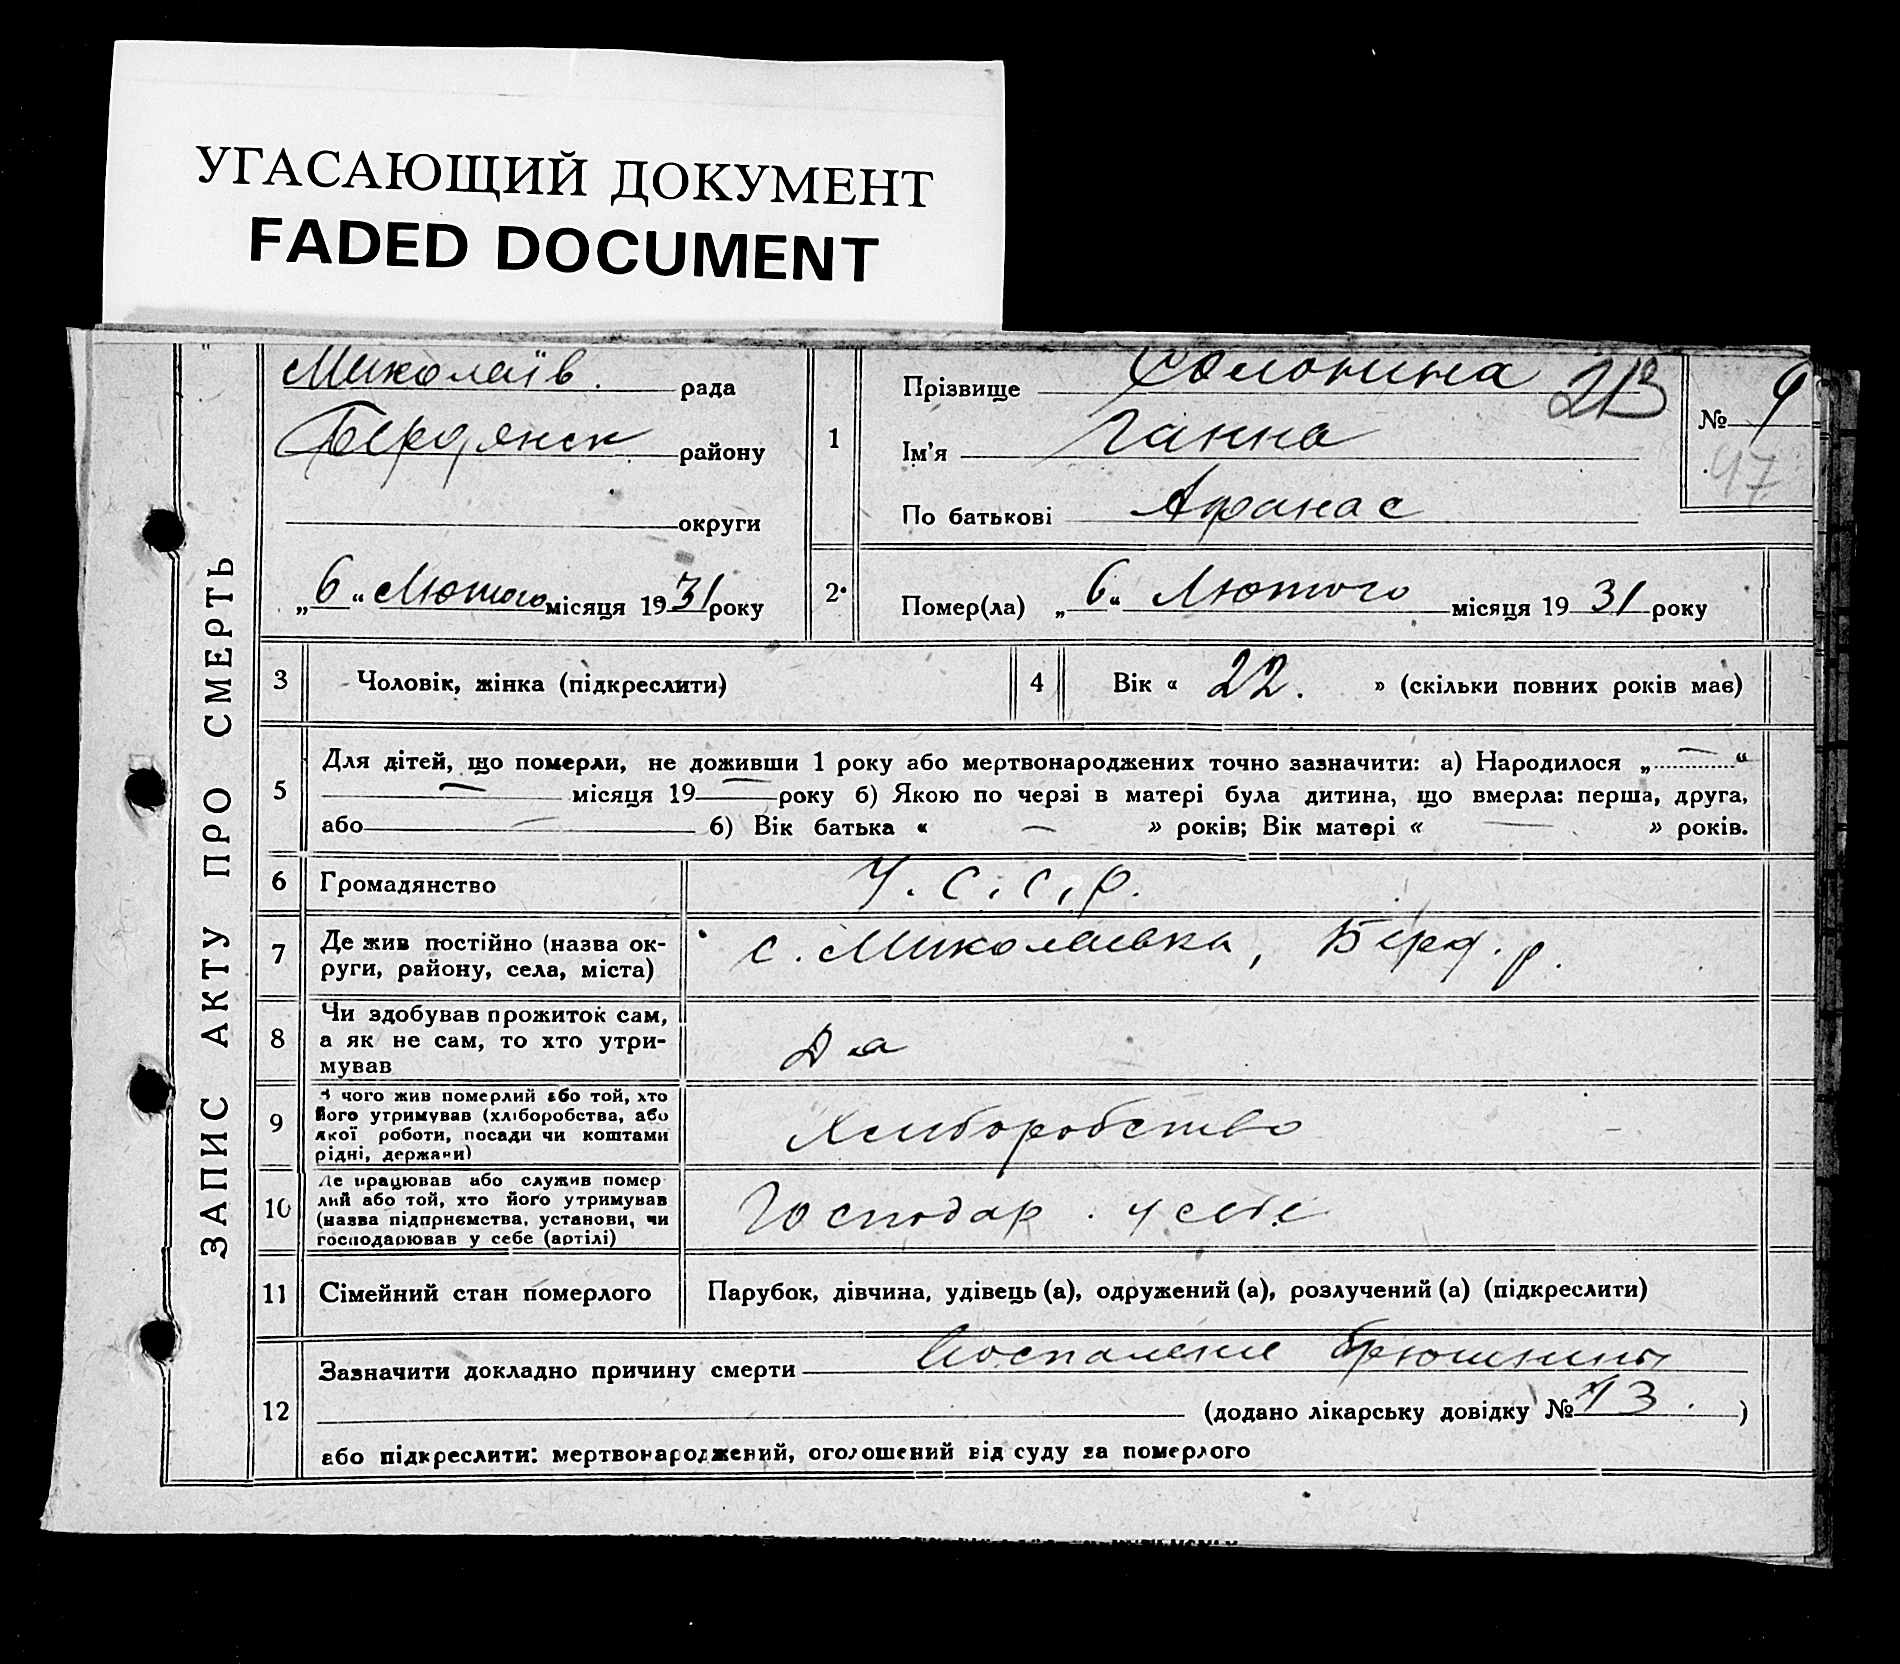 УГАСАЮЩИЙ ДОКУМЕНТ
FADED DOCUMENT
ЗАПИС АКТУ ПРО СМЕРТЬ
Миколаїв. рада
Бердянск району
округи
„6“ Лютого місяця 1931 року
1
Прізвище Солонина
213
Ім'я Ганна
По батькові Афанас
№ 9
47
2
Помер(ла) „6“ Лютого місяця 1931 року
3 Чоловік, жінка (підкреслити)
4 Вік « 22. » (скільки повних років має)
5
Для дітей, що померли, не доживши 1 року або мертвонароджених точно зазначити: а) Народилося „ — “
— місяця 19 — року б) Якою по черзі в матері була дитина, що вмерла: перша, друга,
або — б) Вік батька « — » років; Вік матері « — » років.
6 Громадянство У.С.С.Р.
7 Де жив постійно (назва ок-
руги, району, села, міста)
с. Миколаевка, Берд. р.
8 Чи здобував прожиток сам,
а як не сам, то хто утри-
мував
Да
9 З чого жив померлий або той, хто
його утримував (хліборобства, або
якої роботи, посади чи коштами
рідні, держави)
Хлиборобство
10 Де працював або служив помер
лий або той, хто його утримував
(назва підприємства, установи, чи
господарював у себе (артілі)
Господар. у себе
11 Сімейний стан померлого Парубок, дівчина, удівець (а), одружений (а), розлучений (а) (підкреслити)
12
Зазначити докладно причину смерти Воспаление брюшины
(додано лікарську довідку № 13. )
або підкреслити: мертвонароджений, оголошений від суду за померлого